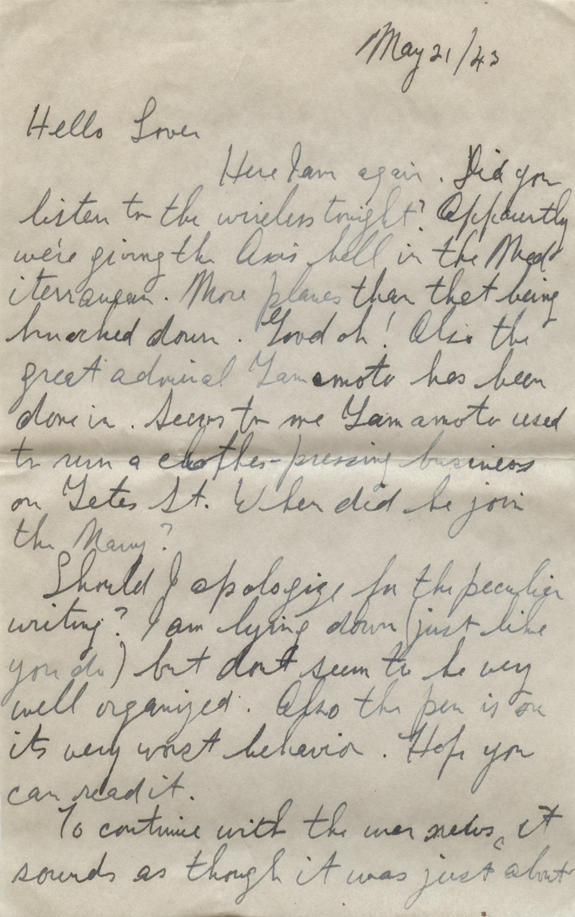 May 21/43
Hello Lover
Here I am again. Did you
listen to the wireless tonight? Appaurtly
we're giving the Axis hell in the Med-
iterranean. More planes than that being
knocked down. Good oh! Also the
great admiral Yamamoto has been
done in. Seems to me Yamamoto used
to run a clothes-pressing business
on Yates St. When did he join
the Navy?
Should I apologize for the peculiar
writing? I am lying down (just like
you do) but don't seem to be very
well organized. Also the pen is on
its very worst behavior. Hope you
can read it.
To continue with the war news, it
sounds as though it was just about